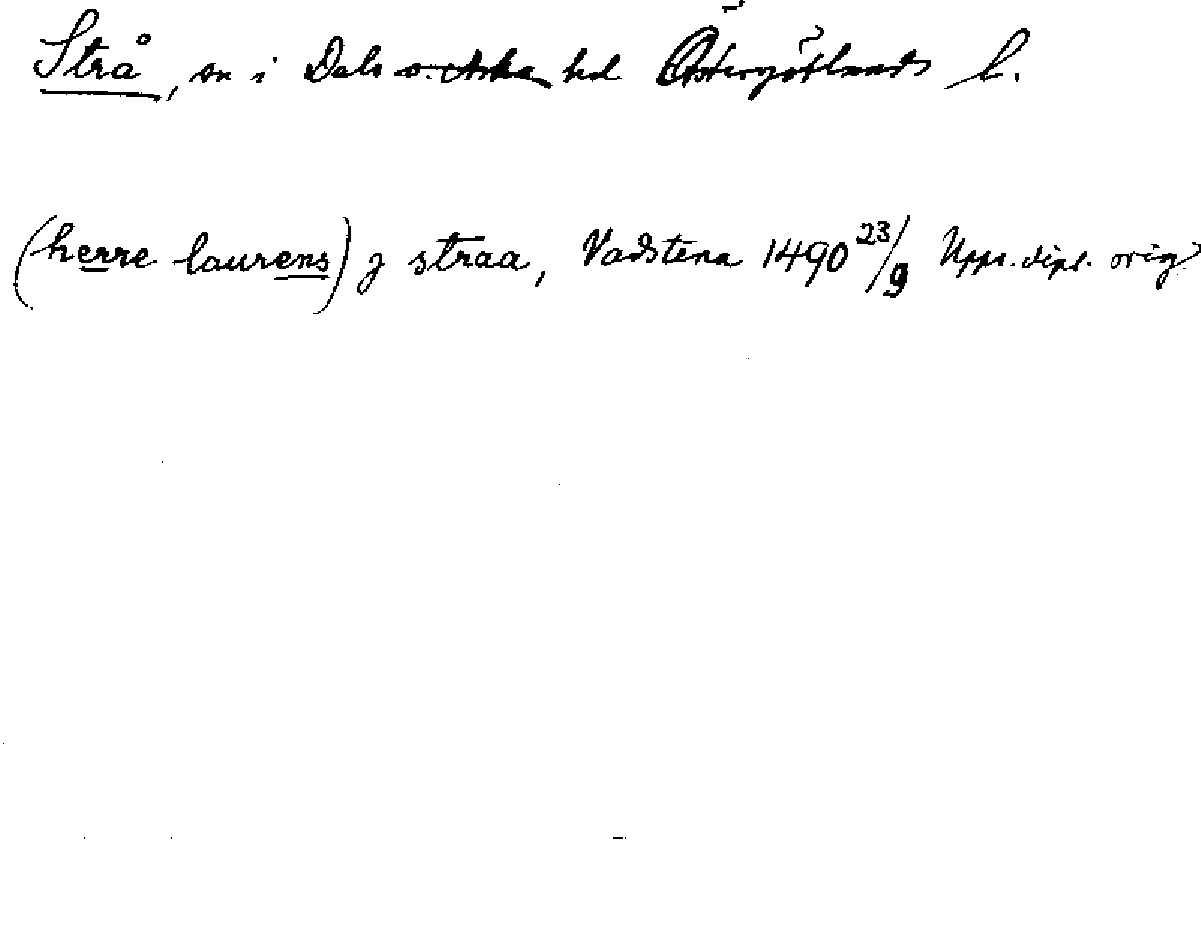 Strå, sn i Dals o. Aska hd Östergötlands l.
(herre laurens) j straa, Vadstena 1490 23/9 Upps. dipl. orig